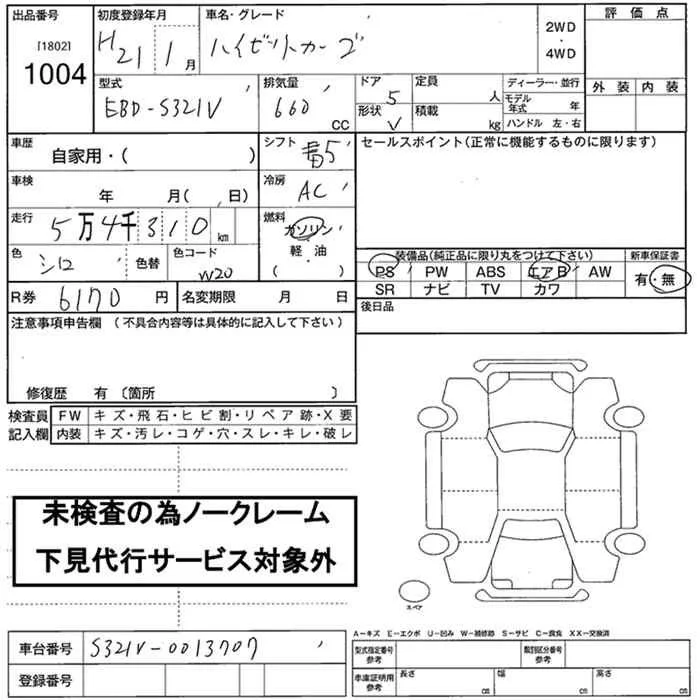 出品番号 初度登録年月 車名・グレード 評価点
[1802] H21 1月 ハイゼットカーゴ 2WD・4WD
1004
型式 排気量 ドア 5 定員 人 ディーラー・並行 外装 内装
EBD-S321V 660 CC 形状 V 積載 kg モデル年式 年
ハンドル 左・右
車歴 自家用・( ) シフト 5 セールスポイント(正常に機能するものに限ります)
車検 年 月( 日) 冷房 AC
走行 5万4千310km 燃料 ガソリン・軽油 ( )
色 シロ 色替 色コード W20
装備品(純正品に限り丸をつけて下さい) 新車保証書
PS PW ABS エアB AW 有・無
SR ナビ TV カワ
R券 6170円 名変期限 月 日 後日品
注意事項申告欄 (不具合内容等は具体的に記入して下さい)
修復歴 有 〔箇所 〕
検査員 FW キズ・飛石・ヒビ割・リペア跡・X要
記入欄 内装 キズ・汚レ・コゲ・穴・スレ・キレ・破レ
未検査の為ノークレーム
下見代行サービス対象外
スペア
A−キズ E−エクボ U−凹み W−補修跡 S−サビ C−腐食 XX−交換済
車台番号 S321V-0013707 型式指定番号 参考 類別区分番号 参考
登録番号 車庫証明用 参考 長さ cm 幅 cm 高さ cm